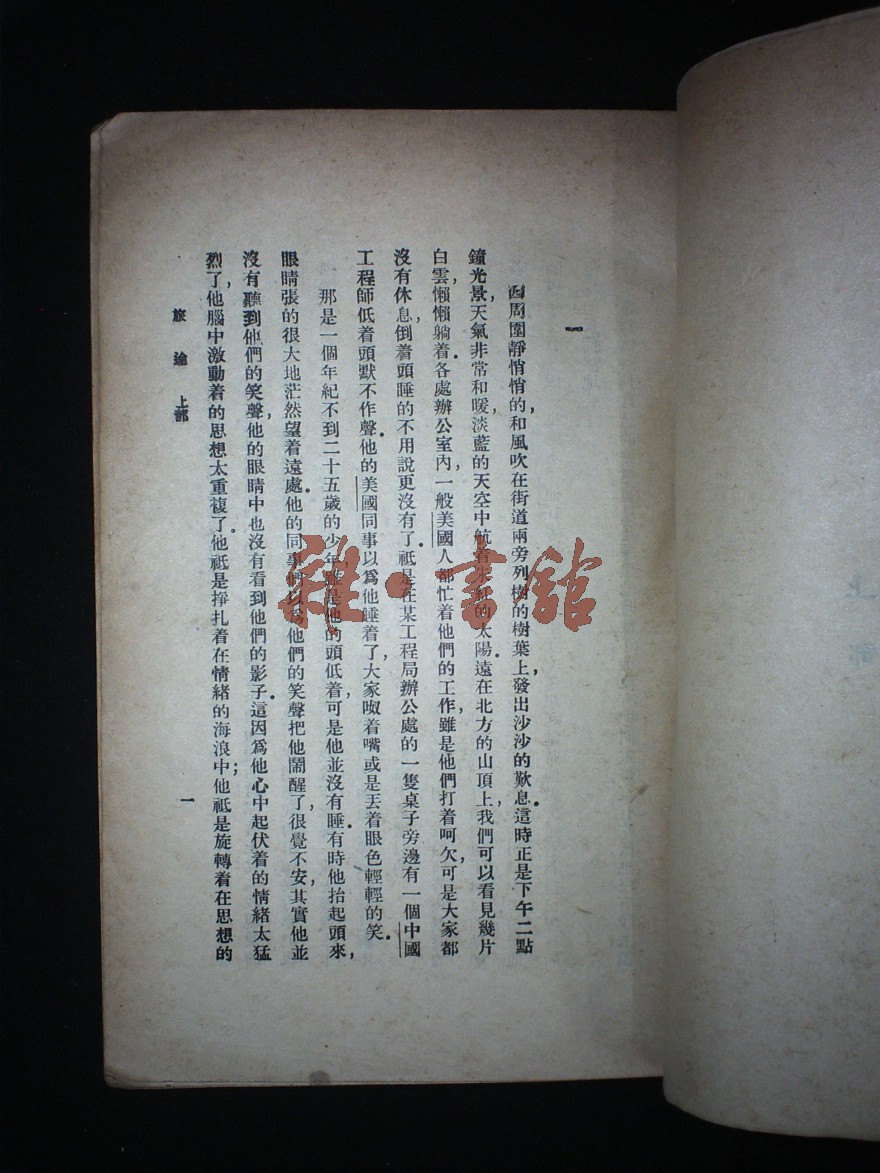 一
四周圍靜悄悄的,和風吹在街道兩旁列樹的樹葉上,發出沙沙的歎息。這時正是下午二點
鐘光景,天氣非常和暖,淡藍的天空中航着朱紅的太陽。遠在北方的山頂上,我們可以看見幾片
白雲,懶懶躺着。各處辦公室內,一般美國人都忙着他們的工作,雖是他們打着呵欠,可是大家都
沒有休息,倒着頭睡的不用說更沒有了。祇是在某工程局辦公處的一隻桌子旁邊,有一個中國
工程師低着頭默不作聲。他的美國同事以爲他睡着了,大家呶着嘴或是丟着眼色輕輕的笑。
那是一個年紀不到二十五歲的少年,雖是他的頭低着,可是他並沒有睡。有時他抬起頭來,
眼睛張的很大地茫然望着遠處。他的同事們以爲他們的笑聲把他鬧醒了,很覺不安,其實他並
沒有聽到他們的笑聲,他的眼睛中也沒有看到他們的影子。這因爲他心中起伏着的情緒太猛
烈了,他腦中激動着的思想太重複了。他祇是掙扎着在情緒的海浪中;他祇是旋轉着在思想的
旅途 上部
一
雜·書館
上
部